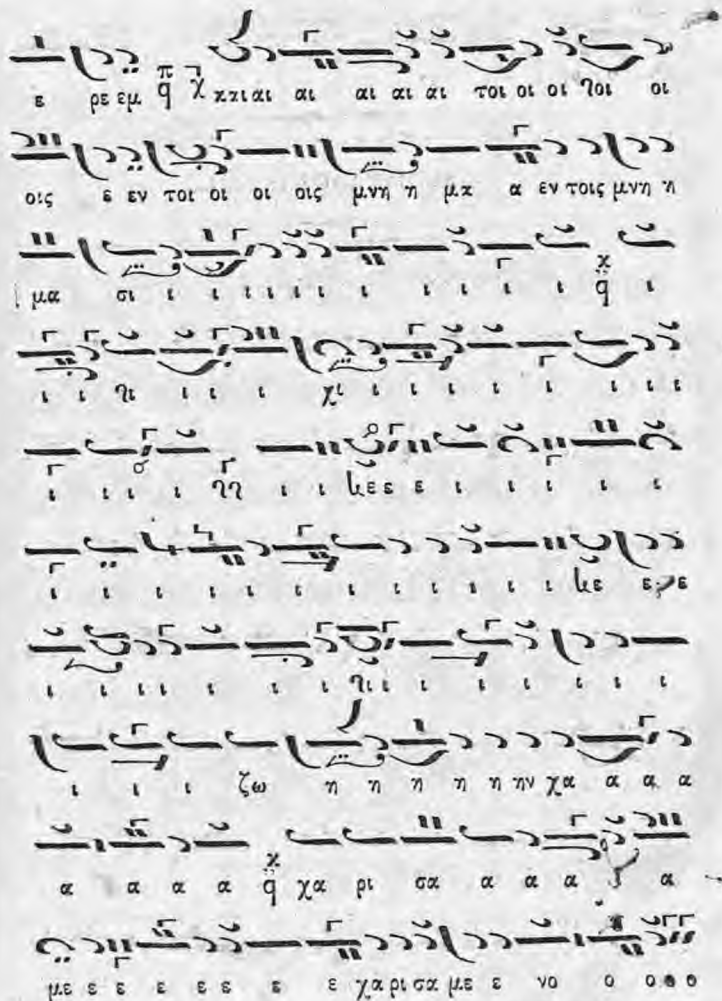 ε ρε εμ π q χ και αι αι αι αι αι τοι οι οι χοι οι
οις ε εν τοι οι οι οις μνη η μα α εν τοις μνη η
μα σι ι ι ι ι ι ι ι ι ι ι ι χ q ι
ι ι χι ι ι ι χι ι ι ι ι ι ι ι ι
ι ι ι ι ι ι ε ε ε ι ι ι ι ι
ι ι ι ι ι ι ι ι ι ι ι ι κε ε ε
ι ι ι ι ι ι ι χι ι ι ι ι ι ι ι
ι ι ι ζω η η η η η ην χα α α α
α α α α χ q χα ρι σα α α α α
με ε ε ε ε ε ε ε χα ρι σα με ε νο ο ο ο ο